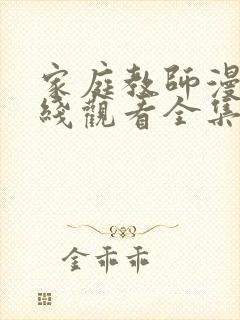 家庭教師漫
綫觀看全集
金乖乖